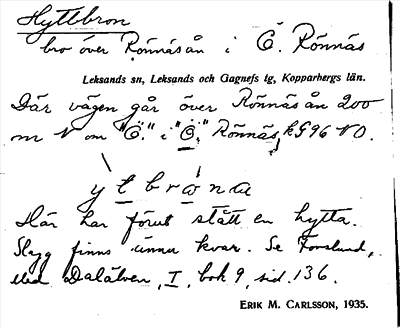 Hyttbron
bro över Rönnäsån i Ö. Rönnäs
Leksands sn, Leksands och Gagnefs tg, Kopparbergs län.
Där vägen går över Rönnäsån 200
m N om "Ö." i "Ö." Rönnäs, kG96 NO.
ytbrona
Här har förut stått en hytta.
Slagg finns ännu kvar. Se Forslund,
Med Dalälven, I, bok 9, sid. 136.
ERIK M. CARLSSON, 1935.